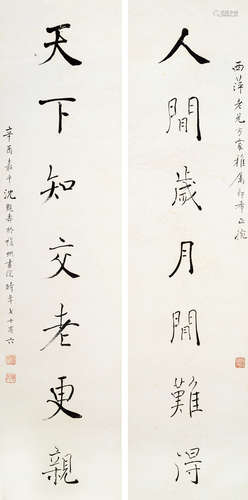 西萍老兄方家雅屬即希正腕
人間歲月閒難得
天下知交老更親
辛酉嘉平沈
書於
時年七十有六